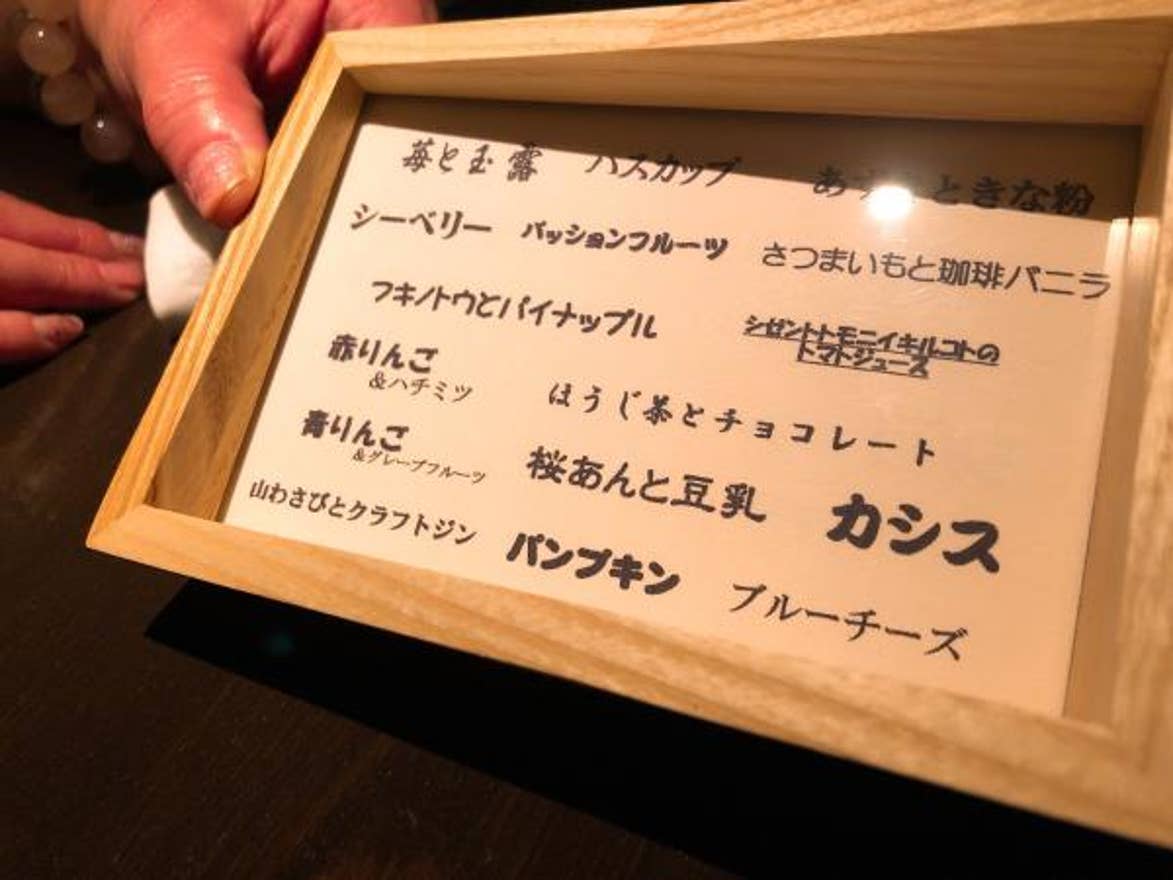 苺と玉露 ハスカップ ときな粉
シーベリー パッションフルーツ さつまいもと珈琲バニラ
フキノトウとパイナップル シゼントトモニイキルコトの
トマトジュース
赤りんご
&ハチミツ ほうじ茶とチョコレート
青りんご
&グレープフルーツ 桜あんと豆乳 カシス
山わさびとクラフトジン パンプキン ブルーチーズ